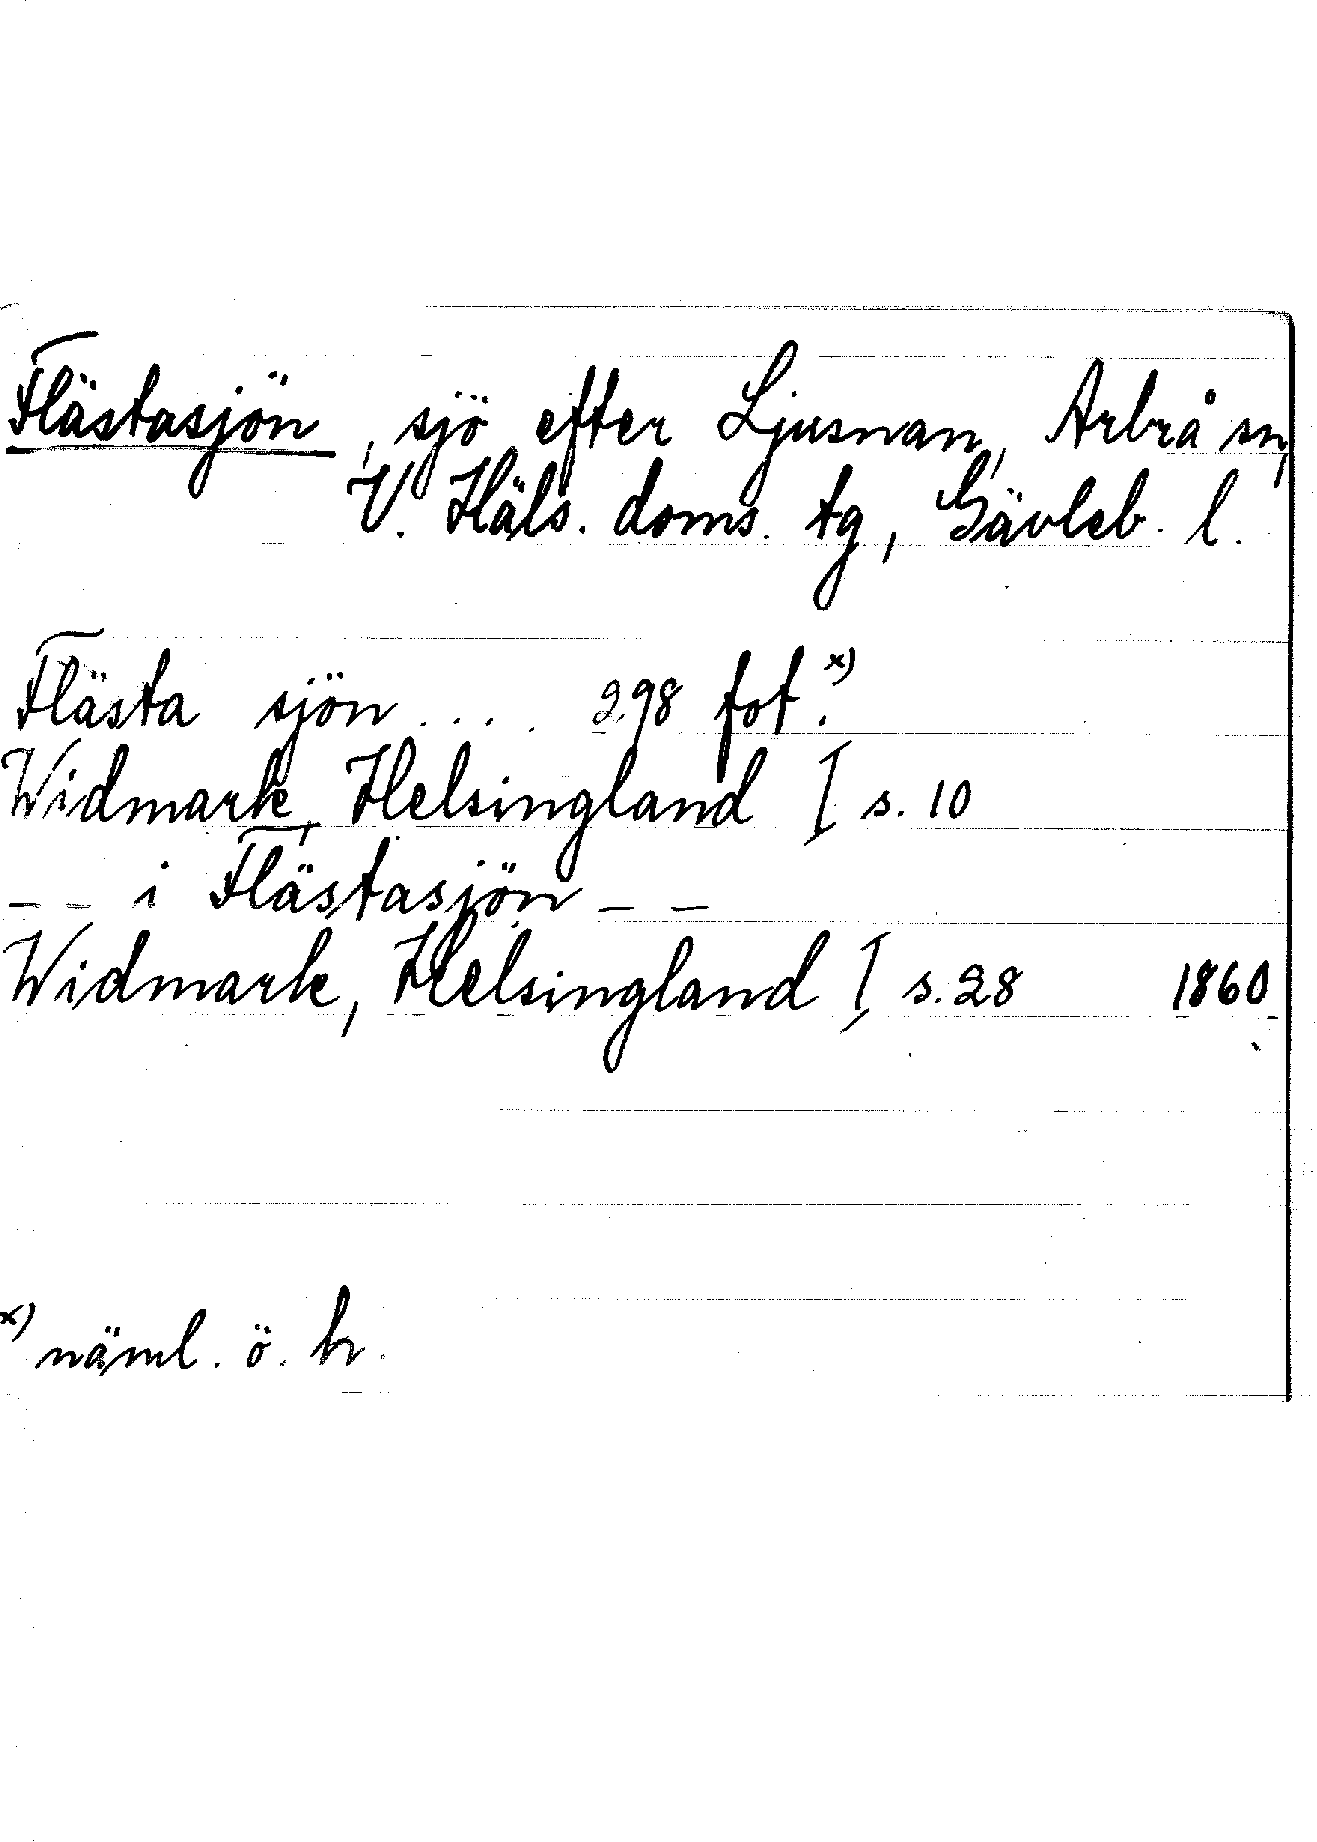 Flästasjön, sjö efter Ljusnan, Arbrå sn,
V. Häls. doms. tg, Gävleb. l.
Flästa sjön.... 298 fot.x)
Widmark, Helsingland I s. 10
_ _ i Flästasjön _ _
Widmark, Helsingland I, s. 28 1860
x) näml. ö. h.